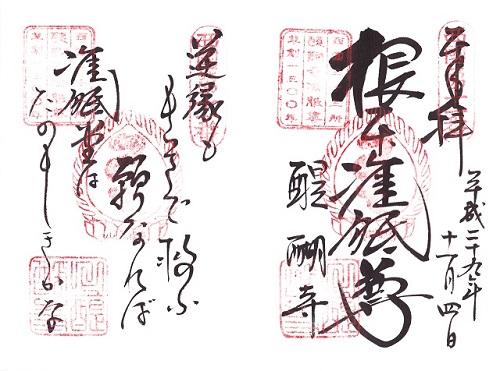 奉拝
平成二十九年
十一月四日
根本准胝尊
醍醐寺
逆縁も
もらさで救ふ
願なれば
准胝堂は
たのもしきかな